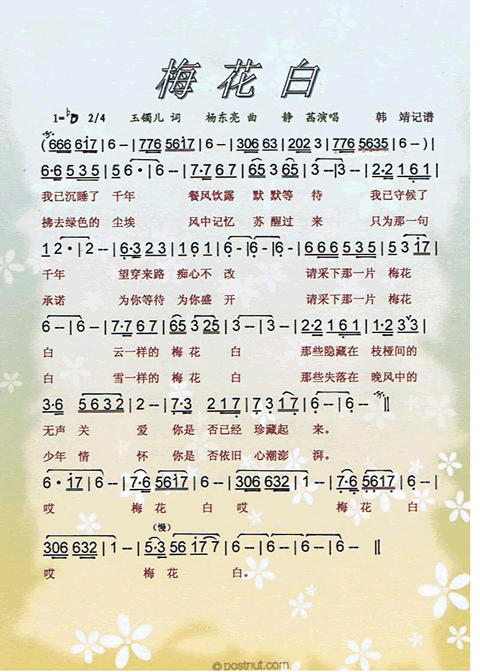 梅花白
1=♭D 2/4 玉镯儿 词 杨东亮 曲 静 茜演唱 韩 靖记谱
(666 617|6--|776 5617|6--|306 63|202 3|776535|6--)|
6·6 535|56·|6--|7·7 67|653 5|3--|3--|2·2 161|
我已沉睡了 千年 餐风饮露 默默等 待 我已守候了
拂去绿色的 尘埃 风中记忆 苏 醒过 来 只为那一句
12·|2--|6·3 23|161|6--|6--|6--|666535|53 17|
千年 望穿来路 痴心不 改 请采下那一片 梅花
承诺 为你等待 为你盛 开 请采下那一片 梅花
6--|6--|7·7 67|653 25|3--|3--|3·3 35|2·2 161|1·2 33|
白 云一样的 梅 花 白 那些隐藏在 枝桠间的
白 雪一样的 梅 花 白 那些失落在 晚风中的
3·6 5632|2--|7·3 217|7·3 217|6--|6--
无声 关 爱 你是 否已经 珍藏起 来。
少年 情 怀 你是 否依旧 心潮澎 湃。
6·17|6--|7·6 5617|6--|306 632|1--|7·6 5617|6--|
哎 梅 花 白 哎 梅 花 白
306 632|1--|5·3 56 17 7|6--|6--|6--|6--||
(慢)
哎 梅 花 白。
© postnut.com